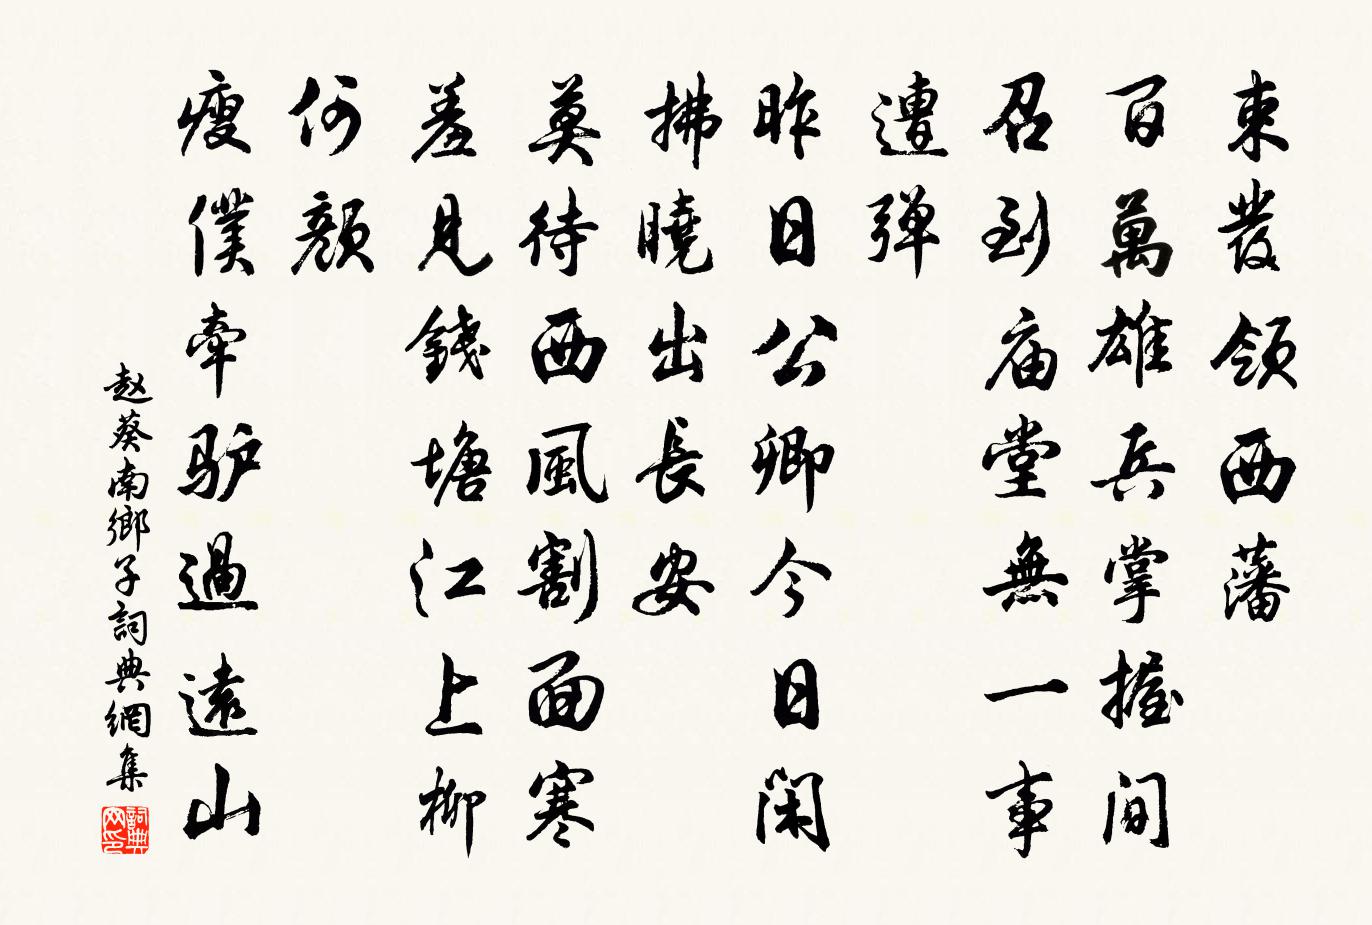 束發領西藩
百萬雄兵掌握間
召到庙堂無一事
遭弹
昨日公卿今日閑
拂曉出長安
莫待西風割面寒
羞見錢塘江上柳
何颜
瘦僕牵驴過遠山
赵葵南鄉子詞典網集
詞典网印